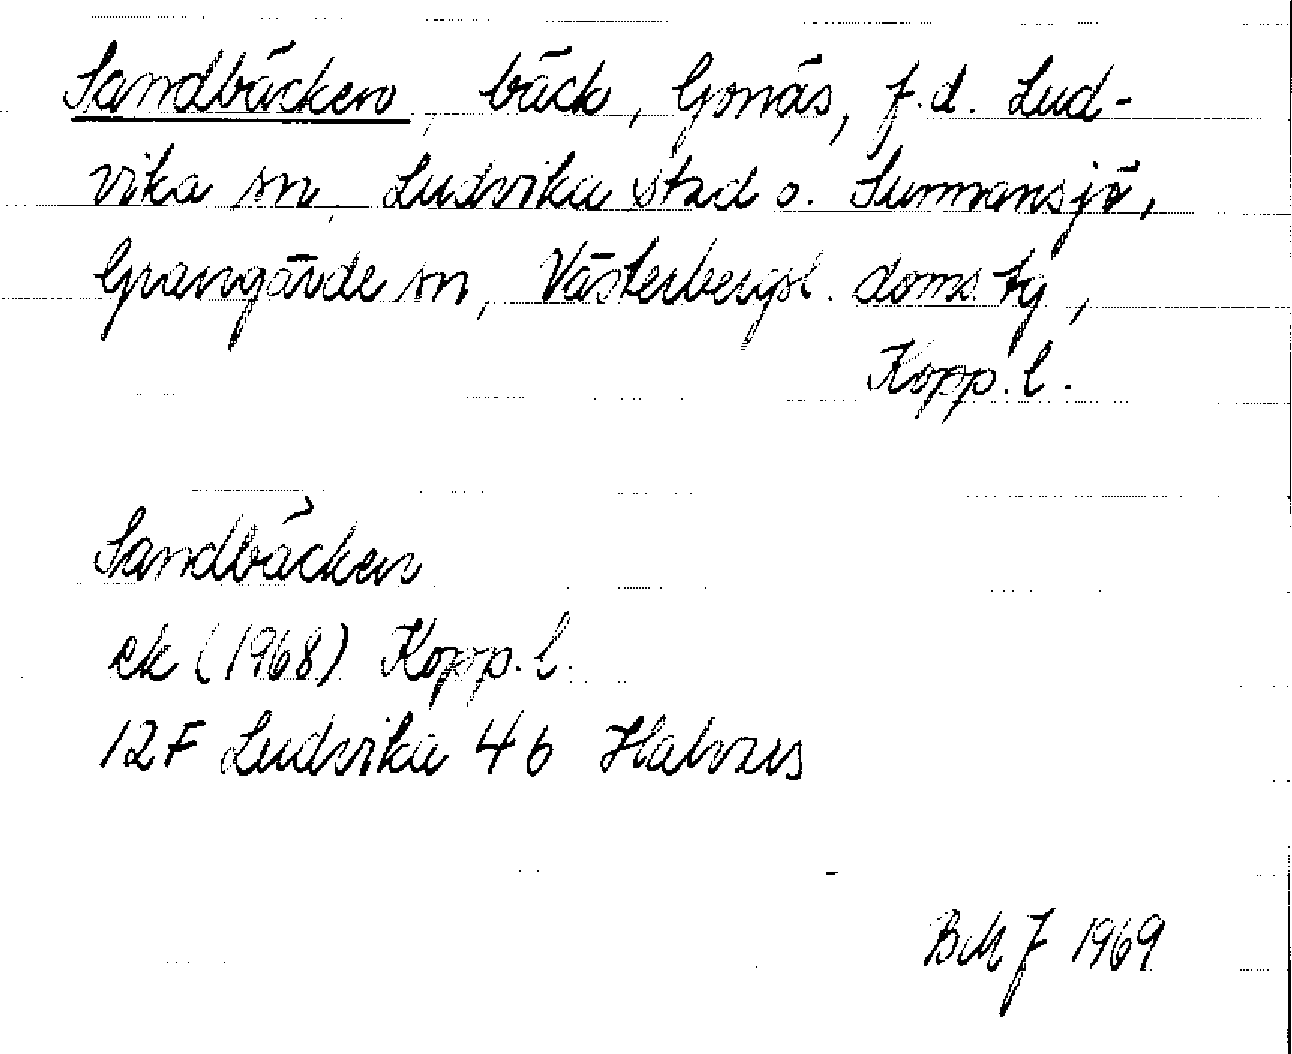 Sandbäcken, bäck, Gonäs, f.d. Lud-
vika sn, Ludvika stad o. Sunnansjö,
Grangärde sn, Västerbergsl. doms. tg,
Kopp. l.
Sandbäcken
ek (1968) Kopp. l.
12F Ludvika 4b Halvars
BMJ 1969